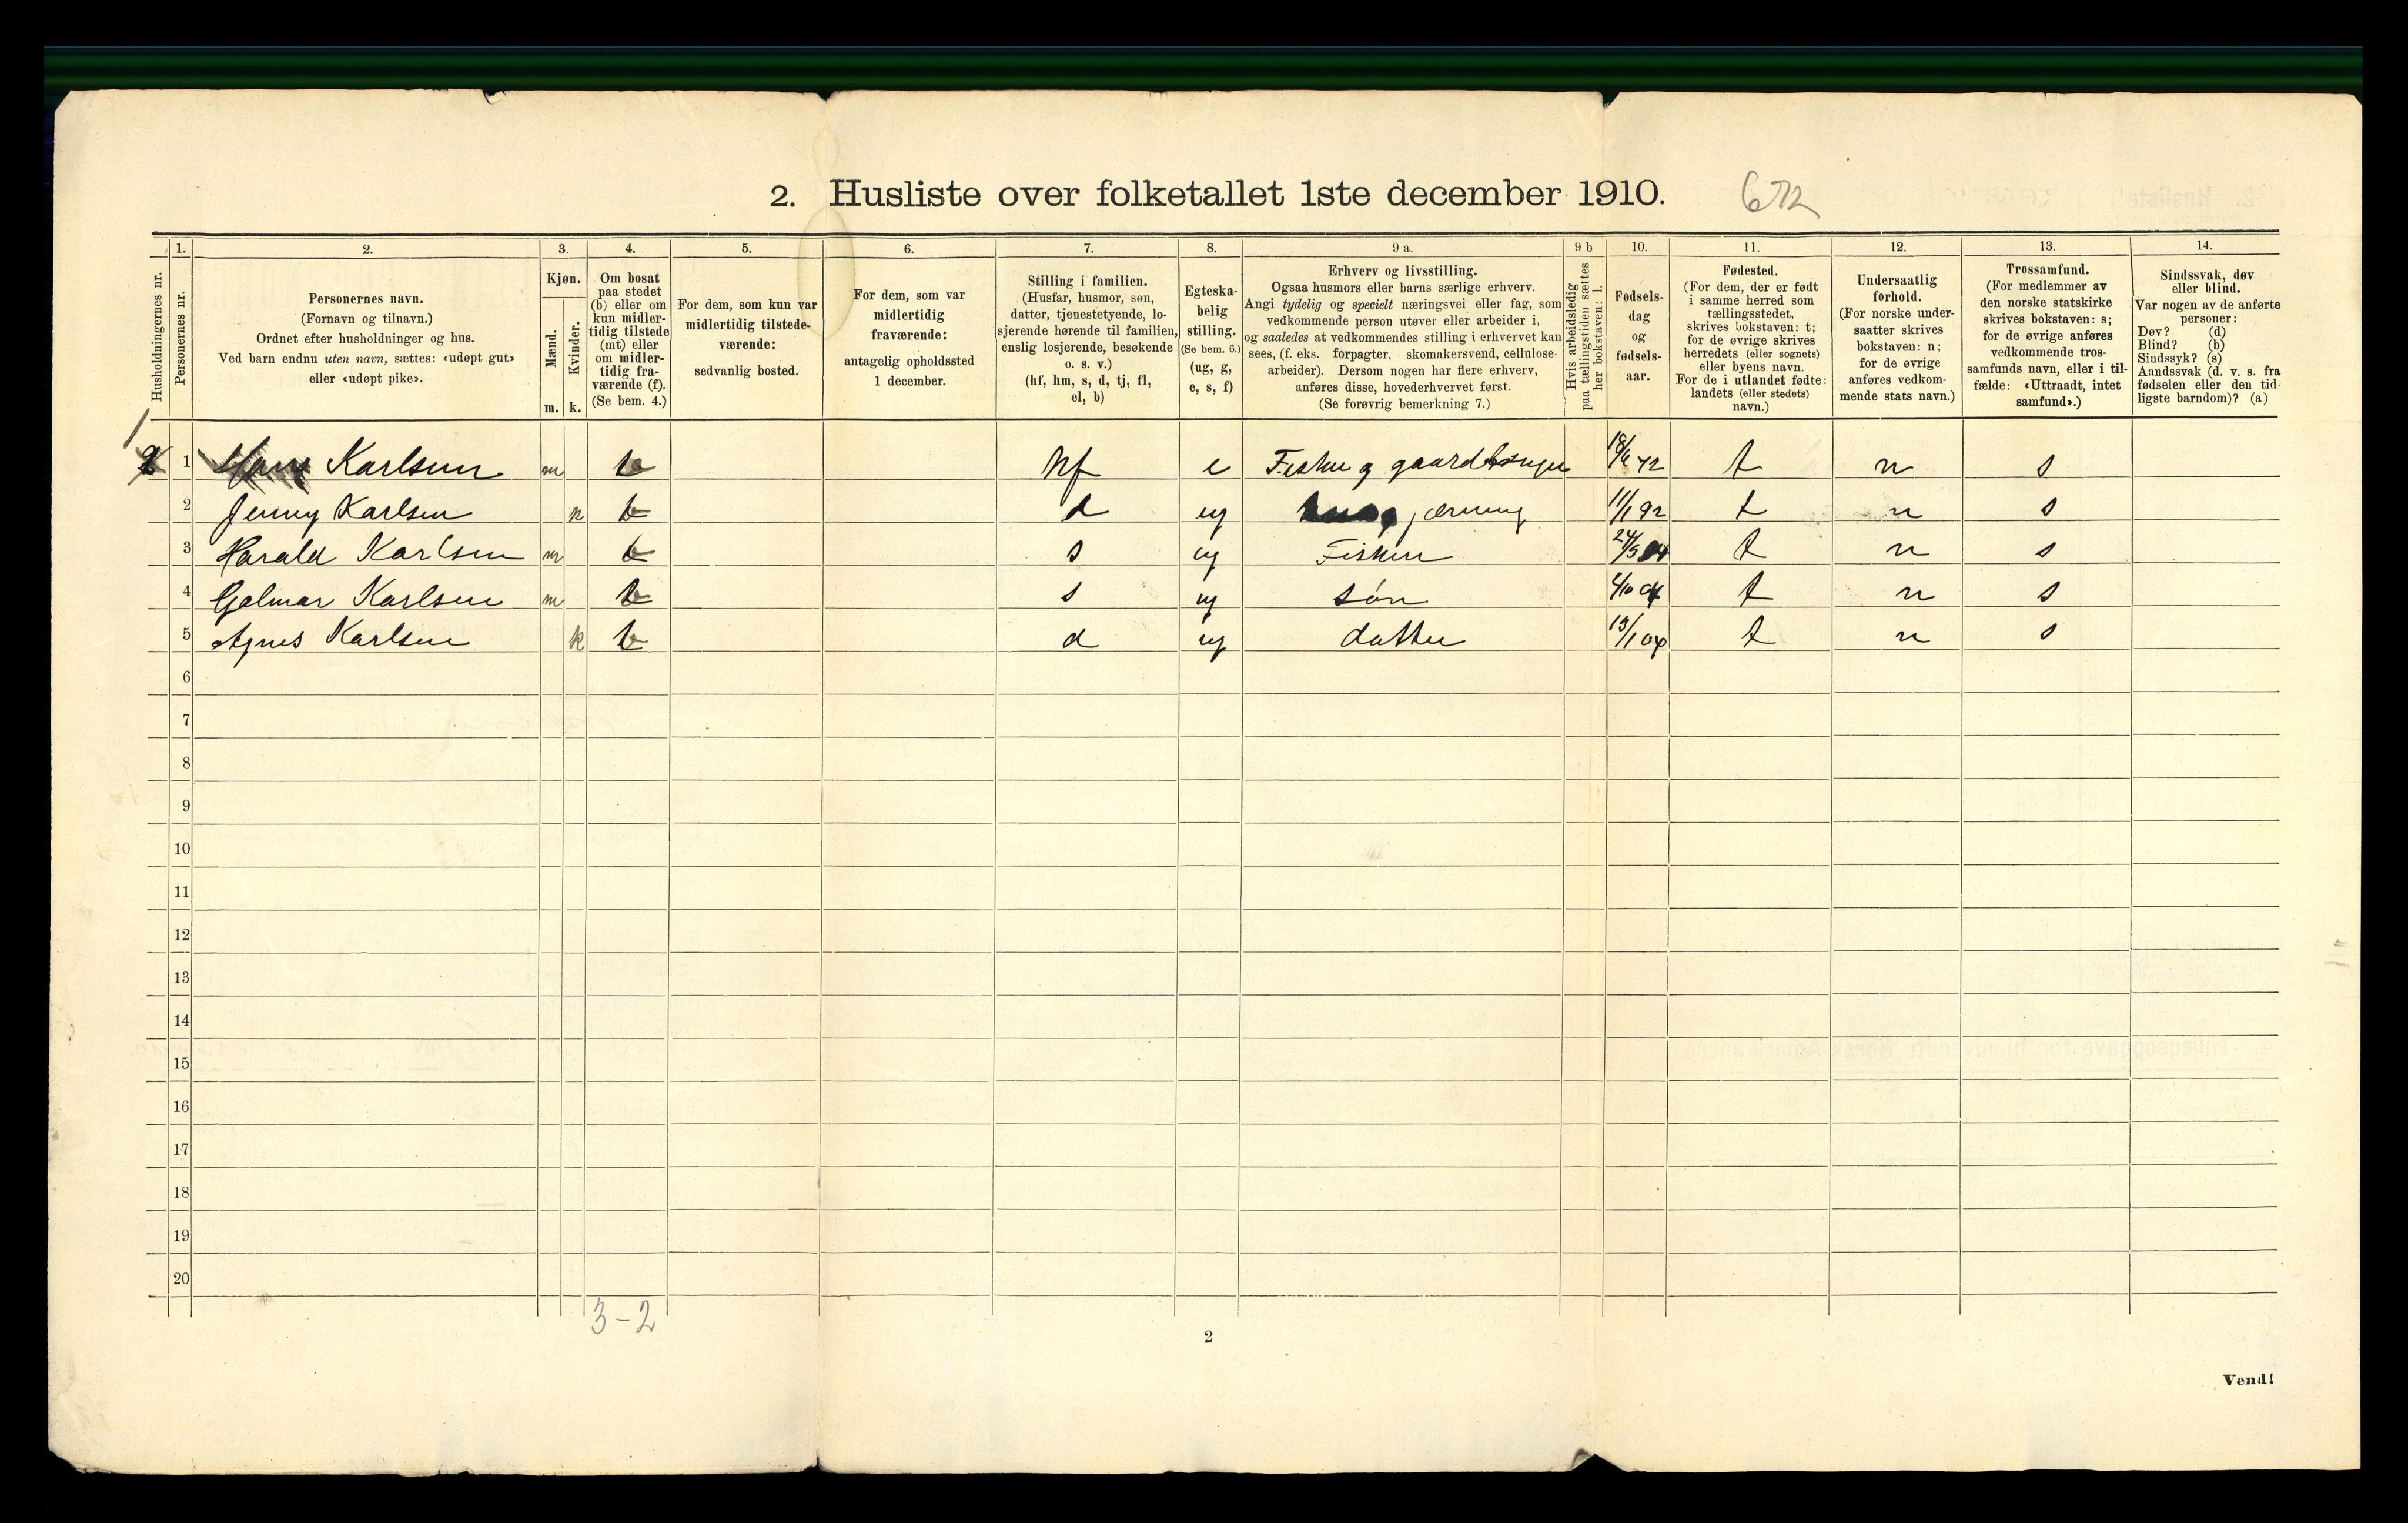 2. Husliste over folketallet 1ste december 1910. 672
1. 2. 3. 4. 5. 6. 7. 8. 9 a. 9 b 10. 11. 12. 13. 14.
Husholdningernes nr.
Personernes nr.
Personernes navn.
(Fornavn og tilnavn.)
Ordnet efter husholdninger og hus.
Ved barn endnu uten navn, sættes: «udøpt gut»
eller «udøpt pike».
Kjøn.
Mænd.
Kvinder.
m. k.
Om bosat
paa stedet
(b) eller om
kun midler-
tidig tilstede
(mt) eller
om midler-
tidig fra-
værende (f).
(Se bem. 4.)
For dem, som kun var
midlertidig tilstede-
værende:
sedvanlig bosted.
For dem, som var
midlertidig
fraværende:
antagelig opholdssted
1 december.
Stilling i familien.
(Husfar, husmor, søn,
datter, tjenestetyende, lo-
sjerende hørende til familien,
enslig losjerende, besøkende
o. s. v.)
(hf, hm, s, d, tj, fl,
el, b)
Egteska-
belig
stilling.
(Se bem. 6.)
(ug, g,
e, s, f)
Erhverv og livsstilling.
Ogsaa husmors eller barns særlige erhverv.
Angi tydelig og specielt næringsvei eller fag, som
vedkommende person utøver eller arbeider i,
og saaledes at vedkommendes stilling i erhvervet kan
sees, (f. eks. forpagter, skomakersvend, cellulose-
arbeider). Dersom nogen har flere erhverv,
anføres disse, hovederhvervet først.
(Se forøvrig bemerkning 7.)
Hvis arbeidsledig
paa tællingstiden sættes
her bokstaven: l.
Fødsels-
dag
og
fødsels-
aar.
Fødested.
(For dem, der er født
i samme herred som
tællingsstedet,
skrives bokstaven: t;
for de øvrige skrives
herredets (eller sognets)
eller byens navn.
For de i utlandet fødte:
landets (eller stedets)
navn.)
Undersaatlig
forhold.
(For norske under-
saatter skrives
bokstaven: n;
for de øvrige
anføres vedkom-
mende stats navn.)
Trossamfund.
(For medlemmer av
den norske statskirke
skrives bokstaven: s;
for de øvrige anføres
vedkommende tros-
samfunds navn, eller i til-
fælde: «Uttraadt, intet
samfund».)
Sindssvak, døv
eller blind.
Var nogen av de anførte
personer:
Døv? (d)
Blind? (b)
Sindssyk? (s)
Aandssvak (d. v. s. fra
fødselen eller den tid-
ligste barndom)? (a)
1
1 Karlsen m b hf e Fisker g 18/6 72 t n s
2 Jenny Karlsen k b d ug gjærning 11/1 92 t n s
3 Harald Karlsen m b s ug Fisker t n s
4 Galmar Karlsen m b s ug søn 4/10 04 t n s
5 Agnes Karlsen k b d ug datter t n s
6
7
8
9
10
11
12
13
14
15
16
17
18
19
20
3-2
2
Vend!